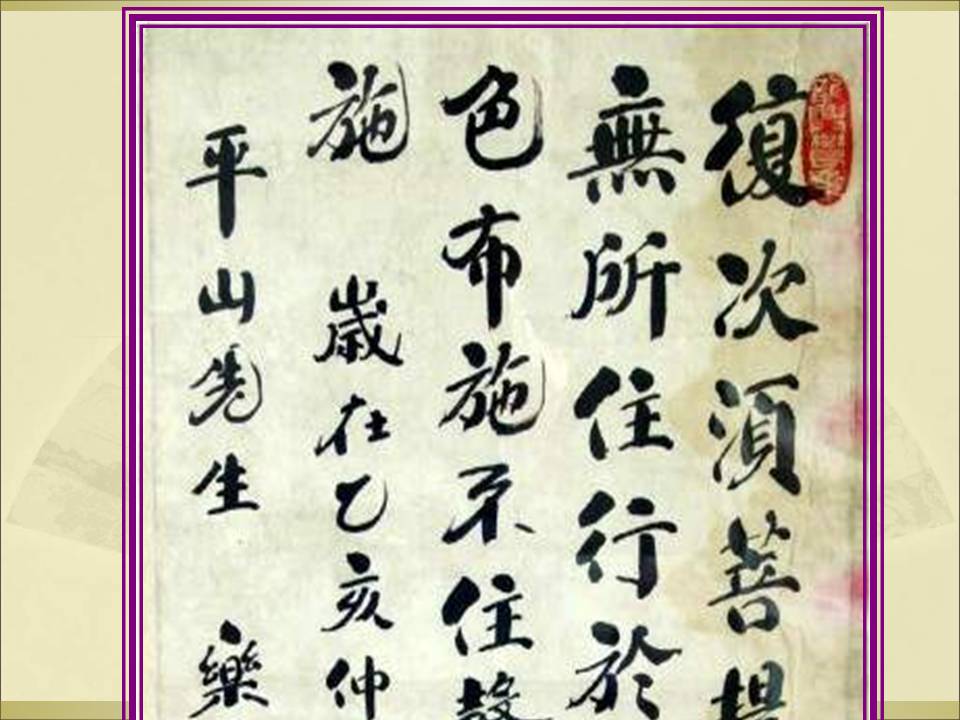 復次須菩提
無所住行於
色布施不住聲
施 歲在乙亥仲
平山先生 樂